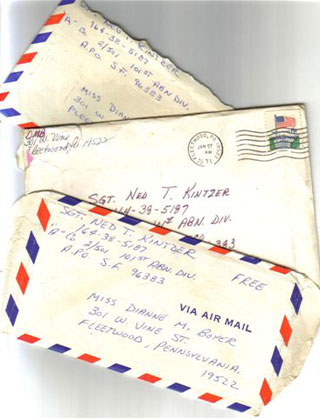 NED T. KINTZER
164-38-5187
A-Co 2/501 101ST ABN. DIV.
A.P.O. S.F.
96383
MISS DIANNE
301 W.
FLEE
301 W. Vine
Fleetwood, Pa 19522
FLEETWOOD, PA
JAN 27
SGT. NED T. KINTZER
164-38-5187
1ST ABN. DIV.
SGT. NED T. KINTZER
164-38-5187
"A-Co 2/501 101ST ABN. DIV.
A.P.O. S.F. 96383
FREE
VIA AIR MAIL
MISS DIANNE M. BOYER
301 W. VINE ST.
FLEETWOOD, PENNSYLVANIA.
19522